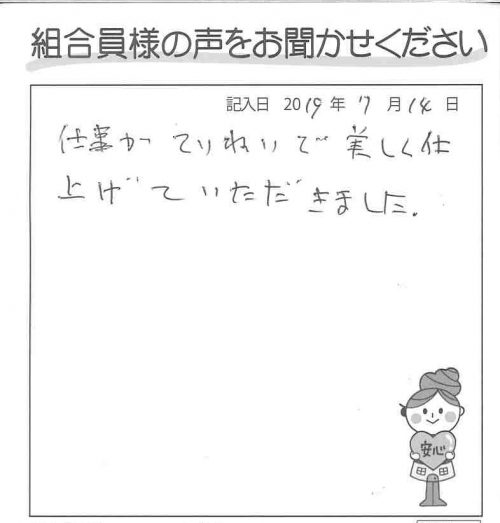 組合員様の声をお聞かせください
記入日 2019年 7月14日
仕事がていねいで美しく仕
上げていただきました.
安心